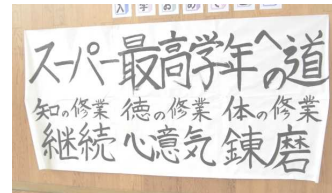 入学おめ
スーパー最高学年への道
知の修業 徳の修業 体の修業
継続 心意気 錬磨